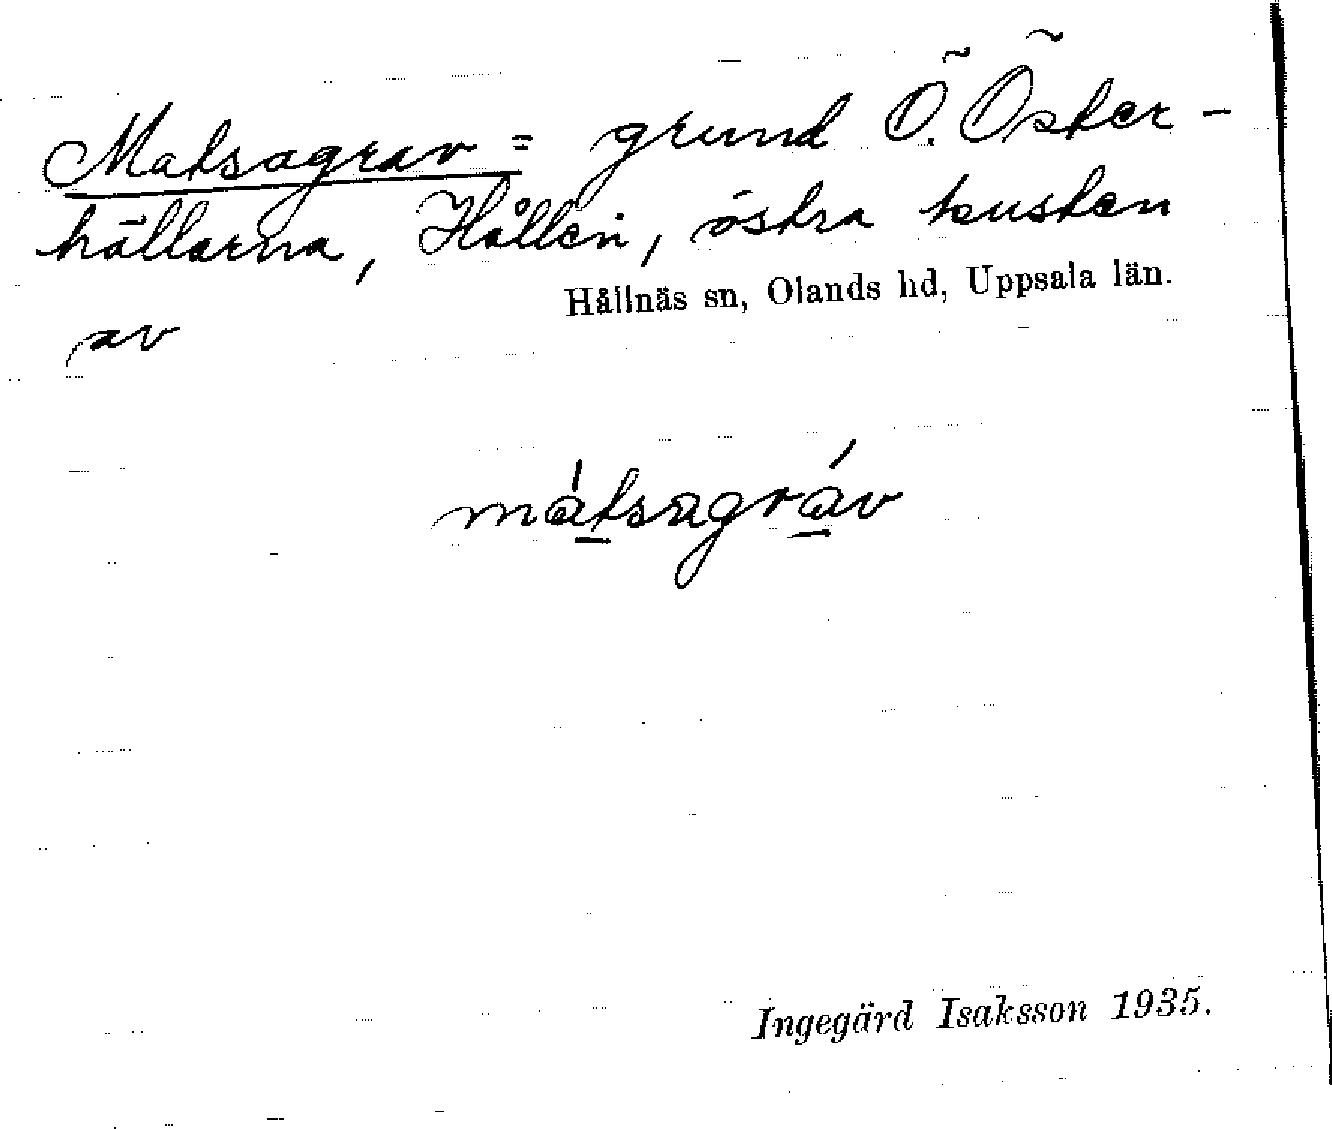 Matsagrav = grund Ö. Öster-
hällarna, Hållen, östra kusten
av Hållnäs sn, Olands hd, Uppsala län.
mátsagráv
Ingegärd Isaksson 1935.